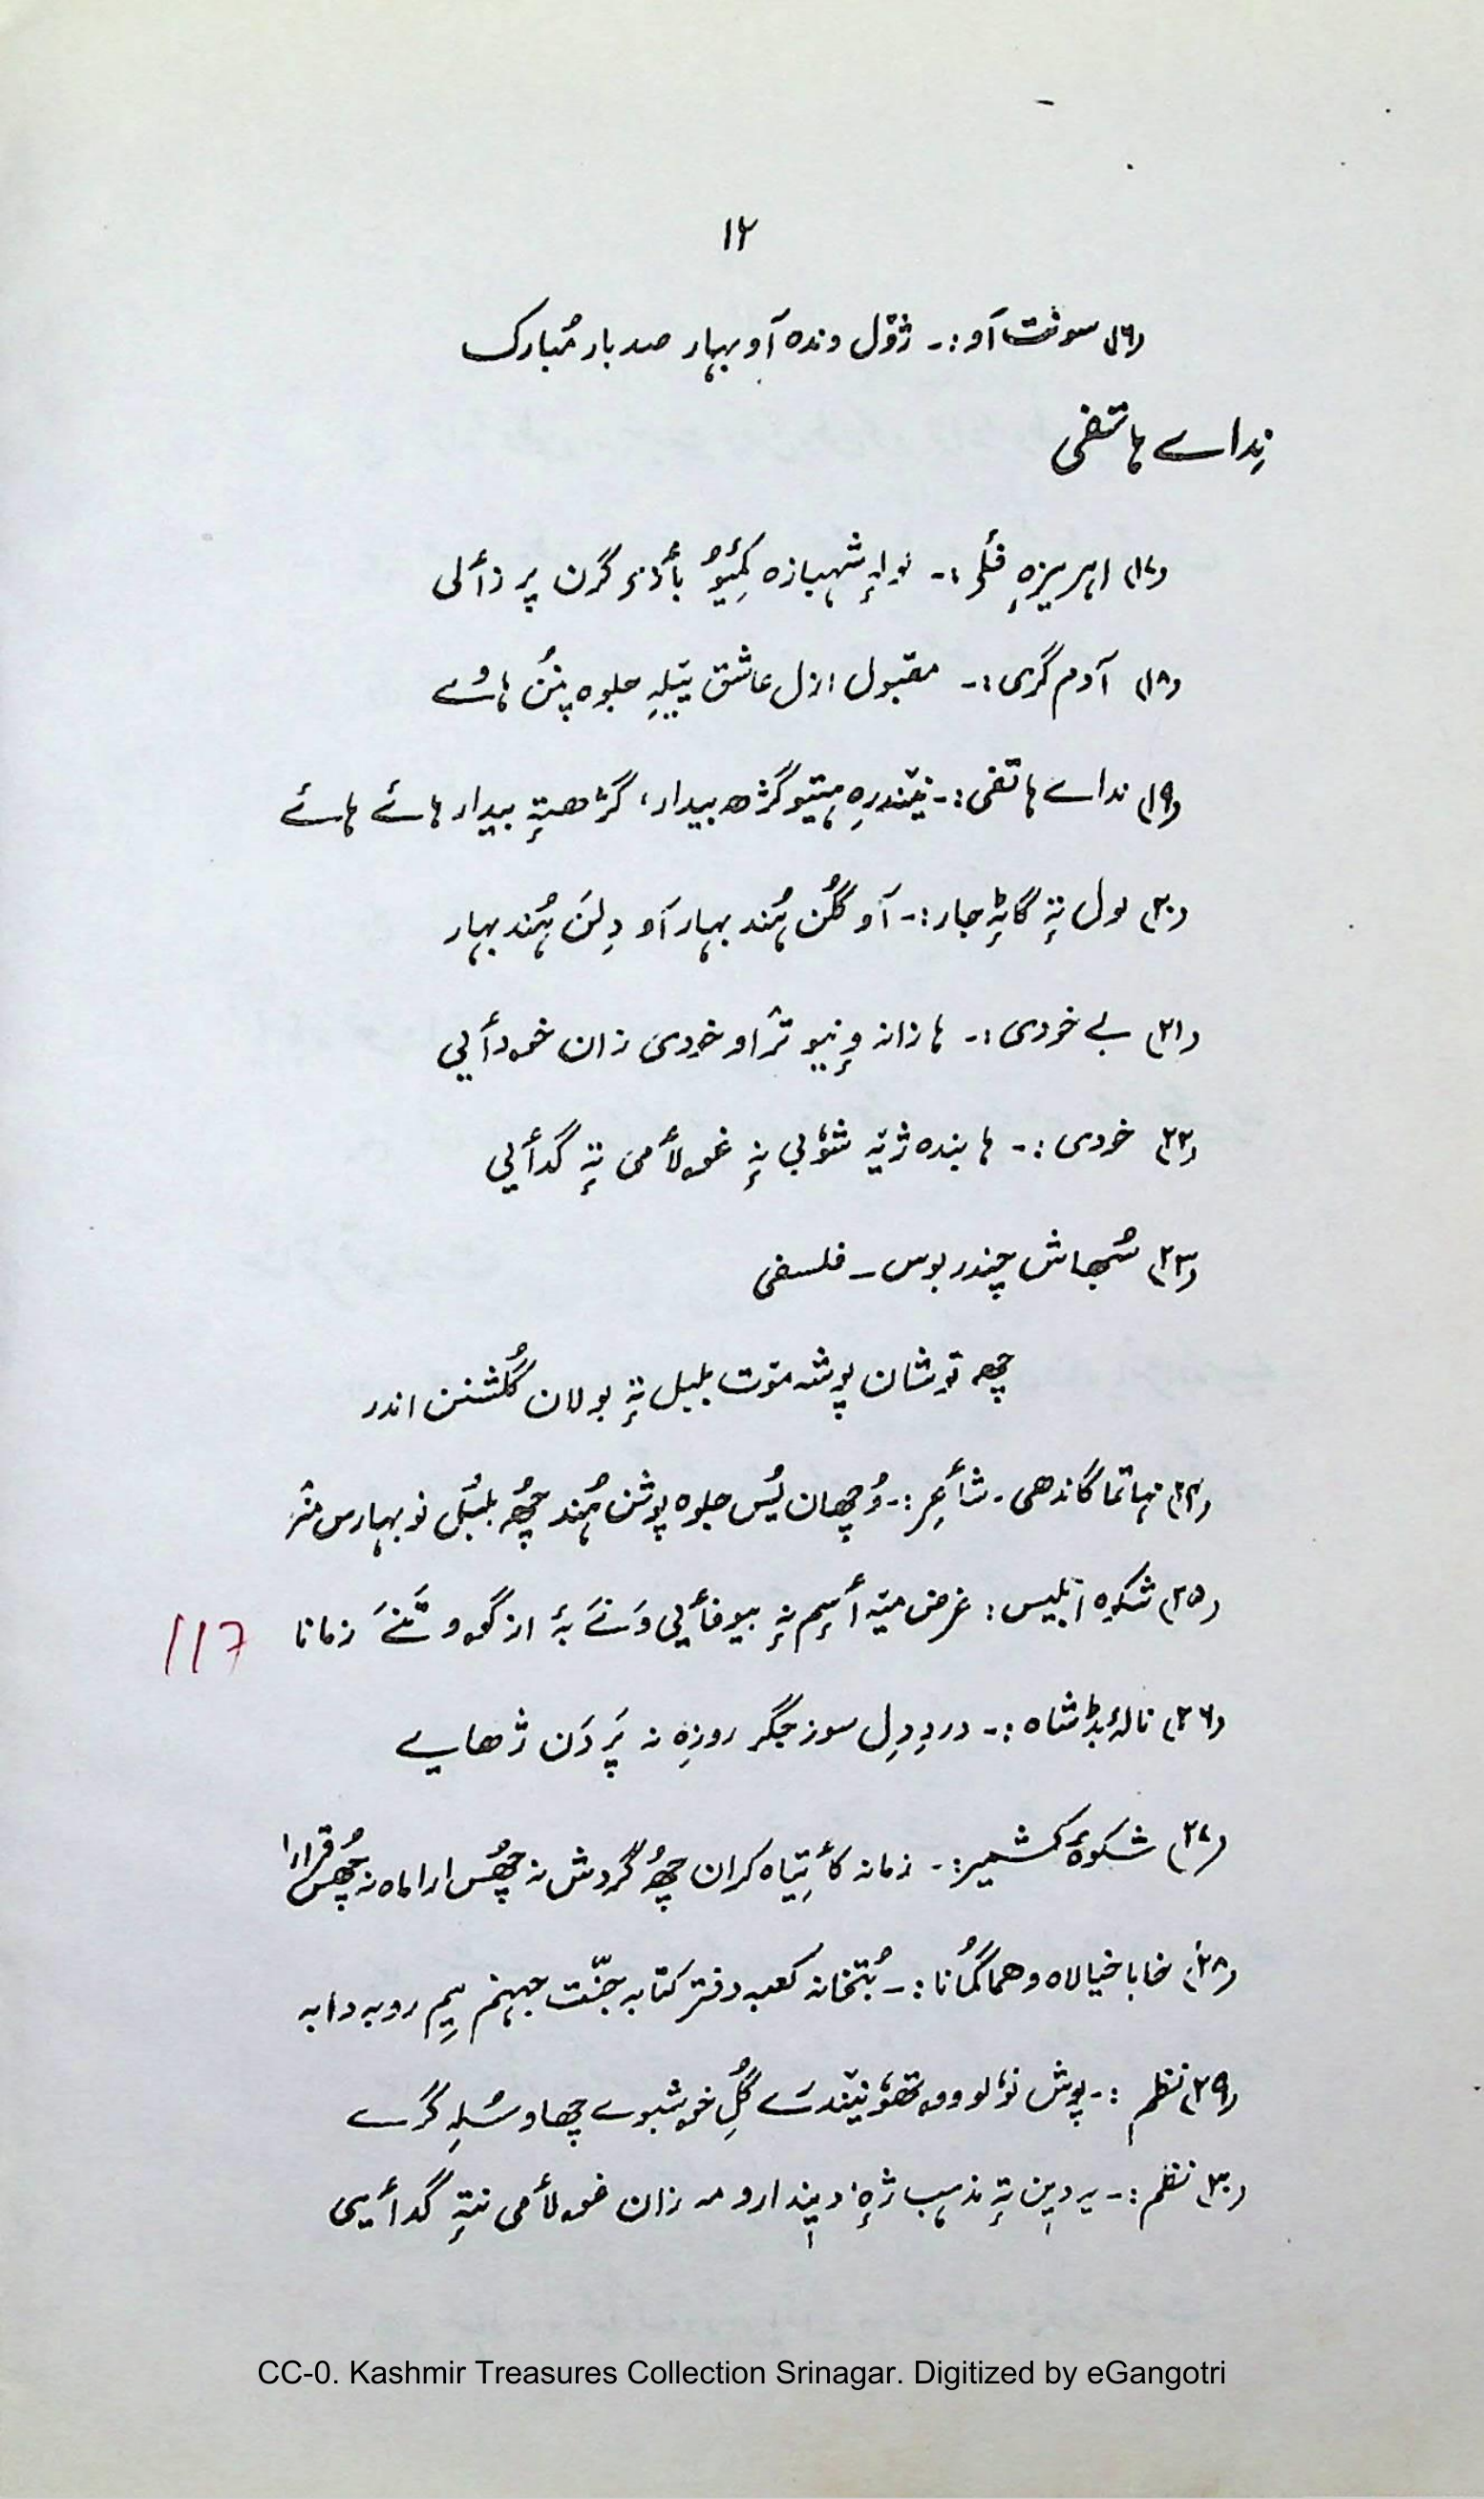 ۱۲
(۱۶) سونت آو :۔ ژوٚل وندہ آو بہار صد بار مُبارک
نِداے ہاتفی
(۱۷) اہریزہٕ فٔلی :۔ نولہٕ شہبازہ کٔمیُو بأدۍ گرن پر زألی
(۱۸) آدم گری :۔ مقبول ازل عاشق تیٚلہِ جلوہ پنُن ہاوے
(۱۹) نداے ہاتفی :۔ نیٚندرہِ ہتیو گژھ بیدار، گژھتہٕ بیدار ہائے ہائے
(۲۰) لول تہٕ گاٹہٕ جار :۔ آو گُلن ہُند بہار آو دِلن ہُند بہار
(۲۱) بے خودی :۔ ہا زانہ وٕنیو تراو خودی زان خودأیی
(۲۲) خودی :۔ ہا بندہ ژیٚہ شوٗبی نہٕ غولأمی تہٕ گدأیی
(۲۳) سُبھاش چندر بوس ۔ فلسفی
چھہ توشان پوشہ متوت بلبل تہٕ بولان گُلشنن اندر
(۲۴) مہاتما گاندھی ۔ شأعِر :۔ وُچھان یُس جلوہ پوشن ہُند چھُہ بلبُل نو بہارس منٛز
(۲۵) شکوہ ابلیس : غرض میٚہ أسٕم نہٕ بیوفأیی وَنے بۂ از گوو وَنَے زمانا
117
(۲۶) نالہٴ بڈشاہ :۔ دردِ دِل سوز جگر روزِہ نہ پَردَن ژھایے
(۲۷) شکوٴہ کشمیر :۔ زمانہ کأتِیاہ کران چھُہ گردش نہ چھُس اراماہ نہ چھُس قرارا
(۲۸) خابا خیالاہ وھما گُمانا :۔ بُتخانہ کعبہ دفتر کتابہ جنّت جہنم یِم روبہ دابہ
(۲۹) نظم :۔ پوش نوٗلو ووتھوٗ نیٚندرے گُلِ خوشبوے چھاو سُلہِ گرے
(۳۰) نظم :۔ یہ دین تہٕ مذہب ژہٕ دیندارو مہ زان غولأمی نتہٕ گدأیی
CC-0. Kashmir Treasures Collection Srinagar. Digitized by eGangotri